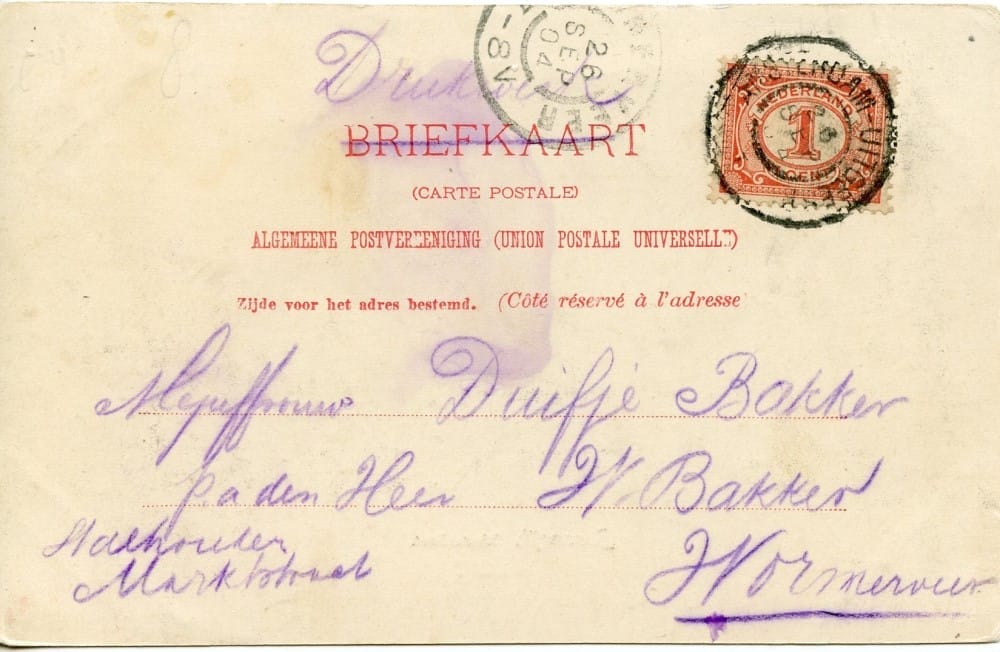 Drukwerk
26
SEP
04
8V
BRIEFKAART
NEDERLAND
1
CENT
(CARTE POSTALE)
ALGEMEENE POSTVEREENIGING (UNION POSTALE UNIVERSELLE)
Zijde voor het adres bestemd. (Côté réservé à l'adresse
Mejuffrouw Duifje Bakker
pa den Heer W. Bakker
Stalhouder
Marktstraat
Wormerveer